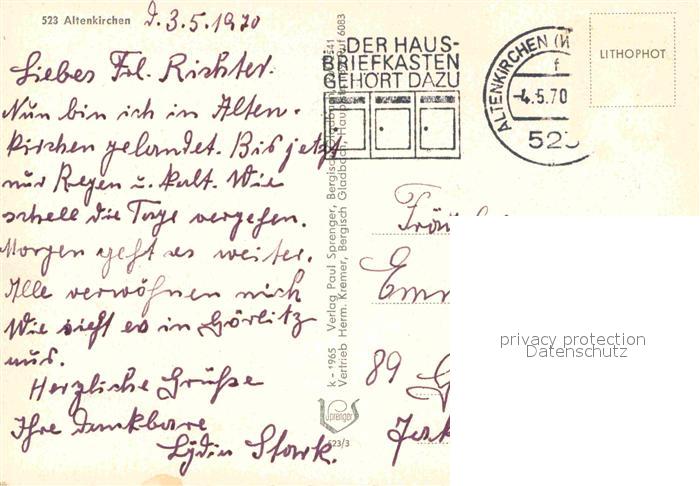 523 Altenkirchen
d. 3.5.1970
Liebes Frl. Richter.
Nun bin ich in Alten-
kirchen gelandet. Bis jetzt
nur Regen u. kalt. Wie
schell die Tage vergehen.
Morgen geht es weiter.
Alle verwöhnen mich
Wie sieht es in Görlitz
aus.
Herzliche Grüße
Ihre dankbare
Lydia Stark.
k - 1965 Verlag Paul Sprenger, Bergisch
Vertrieb Herm. Kremer, Bergisch Gladbach, 6083
Sprenger
523/3
DER HAUS-
BRIEFKASTEN
GEHÖRT DAZU
ALTENKIRCHEN (W
f
-4.5.70
523
LITHOPHOT
Fräul
Em
89 G
privacy protection
Datenschutz